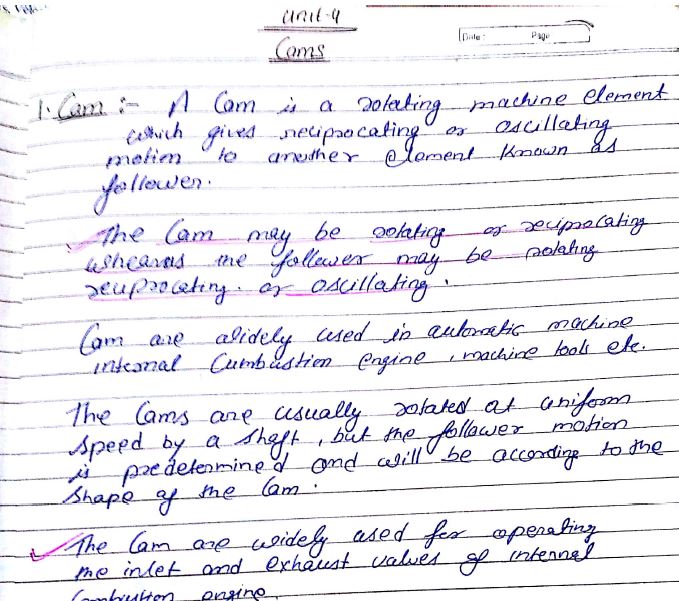 Unit-4
Cams
Date : Page
1. Cam :- A Cam is a rotating machine element
which gives reciprocating or oscillating
motion to another element known as
follower.
The Cam may be rotating or reciprocating
wheareas the follower may be rotating
reciprocating. or oscillating.
Cam are widely used in automatic machine
internal Cumbustion engine, machine tools etc.
The Cams are usually rotated at uniform
speed by a shaft, but the follower motion
is predetermined and will be according to the
shape of the Cam.
The Cam are widely used for operating
the inlet and exhaust values of internal
Combustion engine.